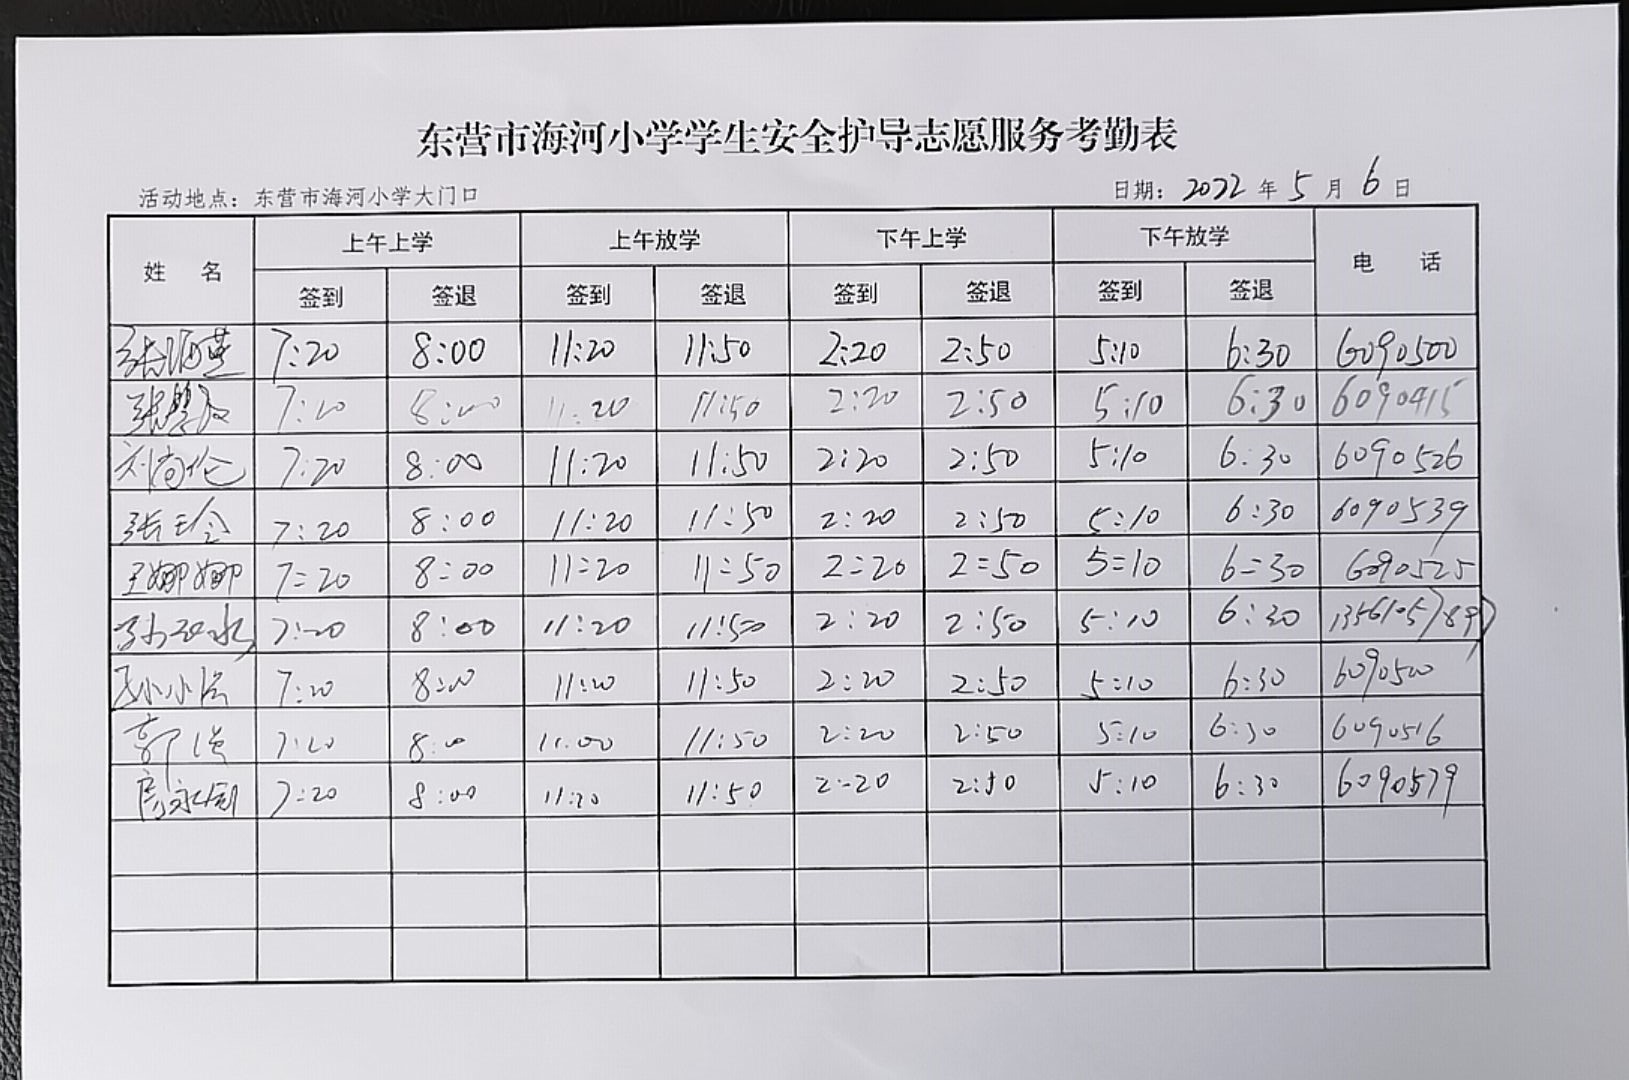 东营市海河小学学生安全护导志愿服务考勤表
活动地点：东营市海河小学大门口 日期：2022年5月6日
姓 名 上午上学 上午放学 下午上学 下午放学 电 话
签到 签退 签到 签退 签到 签退 签到 签退
张海燕 7:20 8:00 11:20 11:50 2:20 2:50 5:10 6:30 6090500
7:20 8:00 11:20 11:50 2:20 2:50 5:10 6:30 6090415
刘尚伦 7:20 8:00 11:20 11:50 2:20 2:50 5:10 6:30 6090526
7:20 8:00 11:20 11:50 2:20 2:50 5:10 6:30 6090539
王娜娜 7=20 8=00 11=20 11=50 2=20 2=50 5=10 6=30 6090525
7:20 8:00 11:20 11:50 2:20 2:50 5:10 6:30
7:20 8:00 11:20 11:50 2:20 2:50 5:10 6:30 6090500
郭 7:20 8:00 11:00 11:50 2:20 2:50 5:10 6:30 6090516
7:20 8:00 11:20 11:50 2:20 2:50 5:10 6:30 6090579